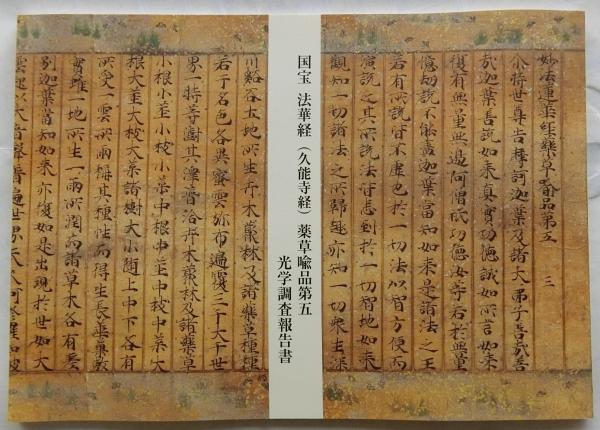 妙法蓮華経藥草喩品第五 三
尒時世尊告摩訶迦葉及諸大弟子善哉善
哉迦葉善説如来真實功徳誠如所言如来
復有無量無邊阿僧祇功徳汝等若於無量
億劫説不能盡迦葉當知如来是諸法之王
若有所説皆不虚也於一切法以智方便而
演説之其所説法皆悉到於一切智地如来
觀知一切諸法之所歸趣亦知一切衆生深
国宝 法華経（久能寺経）薬草喩品第五
光学調査報告書
川谿谷土地所生卉木藂林及諸藥草種種
若干名色各異蜜雲弥布遍覆三千大千世
界一時等澍其澤普洽卉木藂林及諸藥草
小根小莖小枝小葉中根中莖中枝中葉大
根大莖大枝大葉諸樹大小随上中下各有
所受一雲所雨稱其種性而得生長華菓敷
實雖一地所生一雨所潤而諸草木各有差
別迦葉當知如来亦復如是出現於世如大
雲起以大音聲普遍世界天人阿修羅如彼